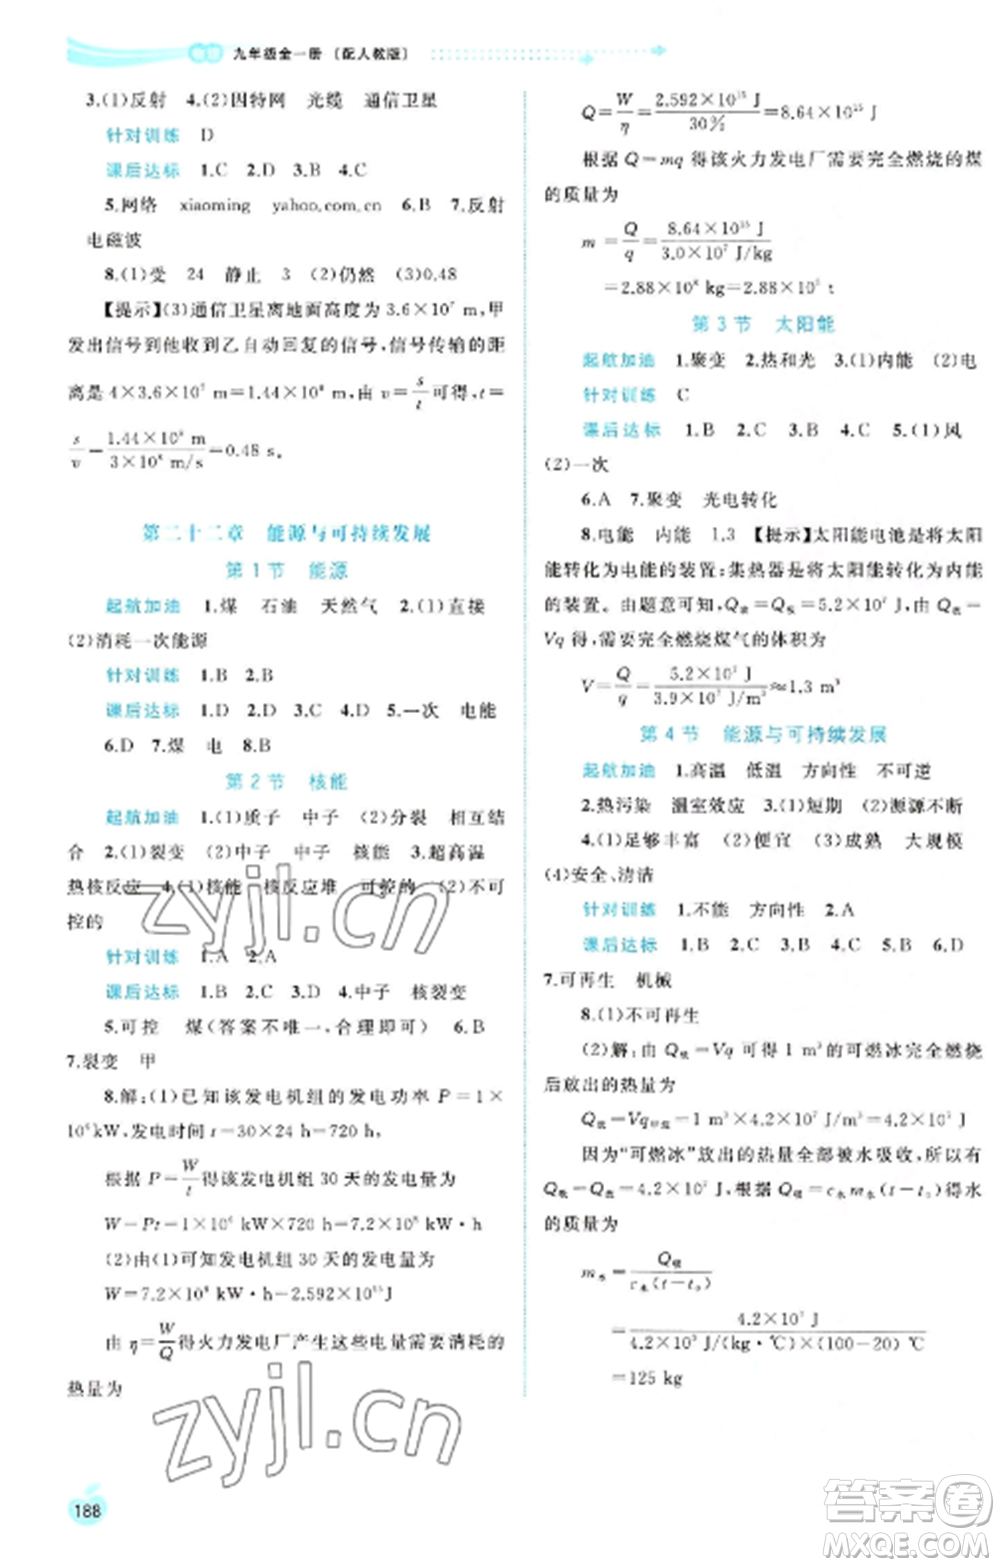 九年级全一册 (配人教版)
3.(1)反射 4.(2)因特网 光缆 通信卫星
针对训练 D
课后达标 1.C 2.D 3.B 4.C
5.网络 xiaoming yahoo.com.cn 6.B 7.反射
电磁波
8.(1)受 24 静止 3 (2)仍然 (3)0.48
【提示】(3)通信卫星离地面高度为 3.6×10⁷ m,甲
发出信号到他收到乙自动回复的信号,信号传输的距
离是 4×3.6×10⁷ m=1.44×10⁸ m,由 v=s/t可得,t=
s/v=1.44×10⁸ m/3×10⁸ m/s=0.48 s。
第二十二章 能源与可持续发展
第1节 能源
起航加油 1.煤 石油 天然气 2.(1)直接
(2)消耗一次能源
针对训练 1.B 2.B
课后达标 1.D 2.D 3.D 4.D 5.一次 电能
6.D 7.煤 电 8.B
第2节 核能
起航加油 1.(1)质子 中子 (2)分裂 相互结
合 2.(1)裂变 (2)中子 中子 核能 3.超高温
热核反应 4.(1)核能 核反应堆 可控的 (2)不可
控的
针对训练 1.A 2.A
课后达标 1.B 2.C 3.D 4.中子 核裂变
5.可控 煤(答案不唯一,合理即可) 6.B
7.裂变 甲
8.解:(1)已知该发电机组的发电功率 P=1×
10⁶kW,发电时间 t=30×24 h=720 h。
根据 P=W/t得该发电机组 30 天的发电量为
W=Pt=1×10⁶ kW×720 h=7.2×10⁸ kW·h
(2)由(1)可知发电机组 30 天的发电量为
W=7.2×10⁸ kW·h=2.592×10¹⁵J
由 η=W/Q得火力发电厂产生这些电量需要消耗的
热量为
188
Q=W/η=2.592×10¹⁵ J/30%=8.64×10¹⁵ J
根据 Q=mq 得该火力发电厂需要完全燃烧的煤
的质量为
m=Q/q=8.64×10¹⁵ J/3.0×10⁷ J/kg
=2.88×10⁸ kg=2.88×10⁵ t
第3节 太阳能
起航加油 1.聚变 2.热和光 3.(1)内能 (2)电
针对训练 C
课后达标 1.B 2.C 3.B 4.C 5.(1)风
(2)一次
6.A 7.聚变 光电转化
8.电能 内能 1.3 【提示】太阳能电池是将太阳
能转化为电能的装置;集热器是将太阳能转化为内能
的装置。由题意可知,Q放=Q吸=5.2×10⁷ J,由 Q放=
Vq 得,需要完全燃烧煤气的体积为
V=Q/q=5.2×10⁷ J/3.9×10⁷ J/m³≈1.3 m³
第4节 能源与可持续发展
起航加油 1.高温 低温 方向性 不可逆
2.热污染 温室效应 3.(1)短期 (2)源源不断
4.(1)足够丰富 (2)便宜 (3)成熟 大规模
(4)安全、清洁
针对训练 1.不能 方向性 2.A
课后达标 1.B 2.C 3.D 4.C 5.B 6.D
7.可再生 机械
8.(1)不可再生
(2)解:由 Q放=Vq 可得 1 m³的可燃冰完全燃烧
后放出的热量为
Q放=Vq可燃冰=1 m³×4.2×10⁷ J/m³=4.2×10⁷ J
因为“可燃冰”放出的热量全部被水吸收,所以有
Q吸=Q放=4.2×10⁷ J,根据 Q吸=c水m水(t-t₀)得水
的质量为
m水=Q吸/c水(t-t₀)
=4.2×10⁷ J/4.2×10³ J/(kg·℃)×(100-20) ℃
=125 kg
zyjl.cn
zyjl.cn
答案圈
MXQE.COM